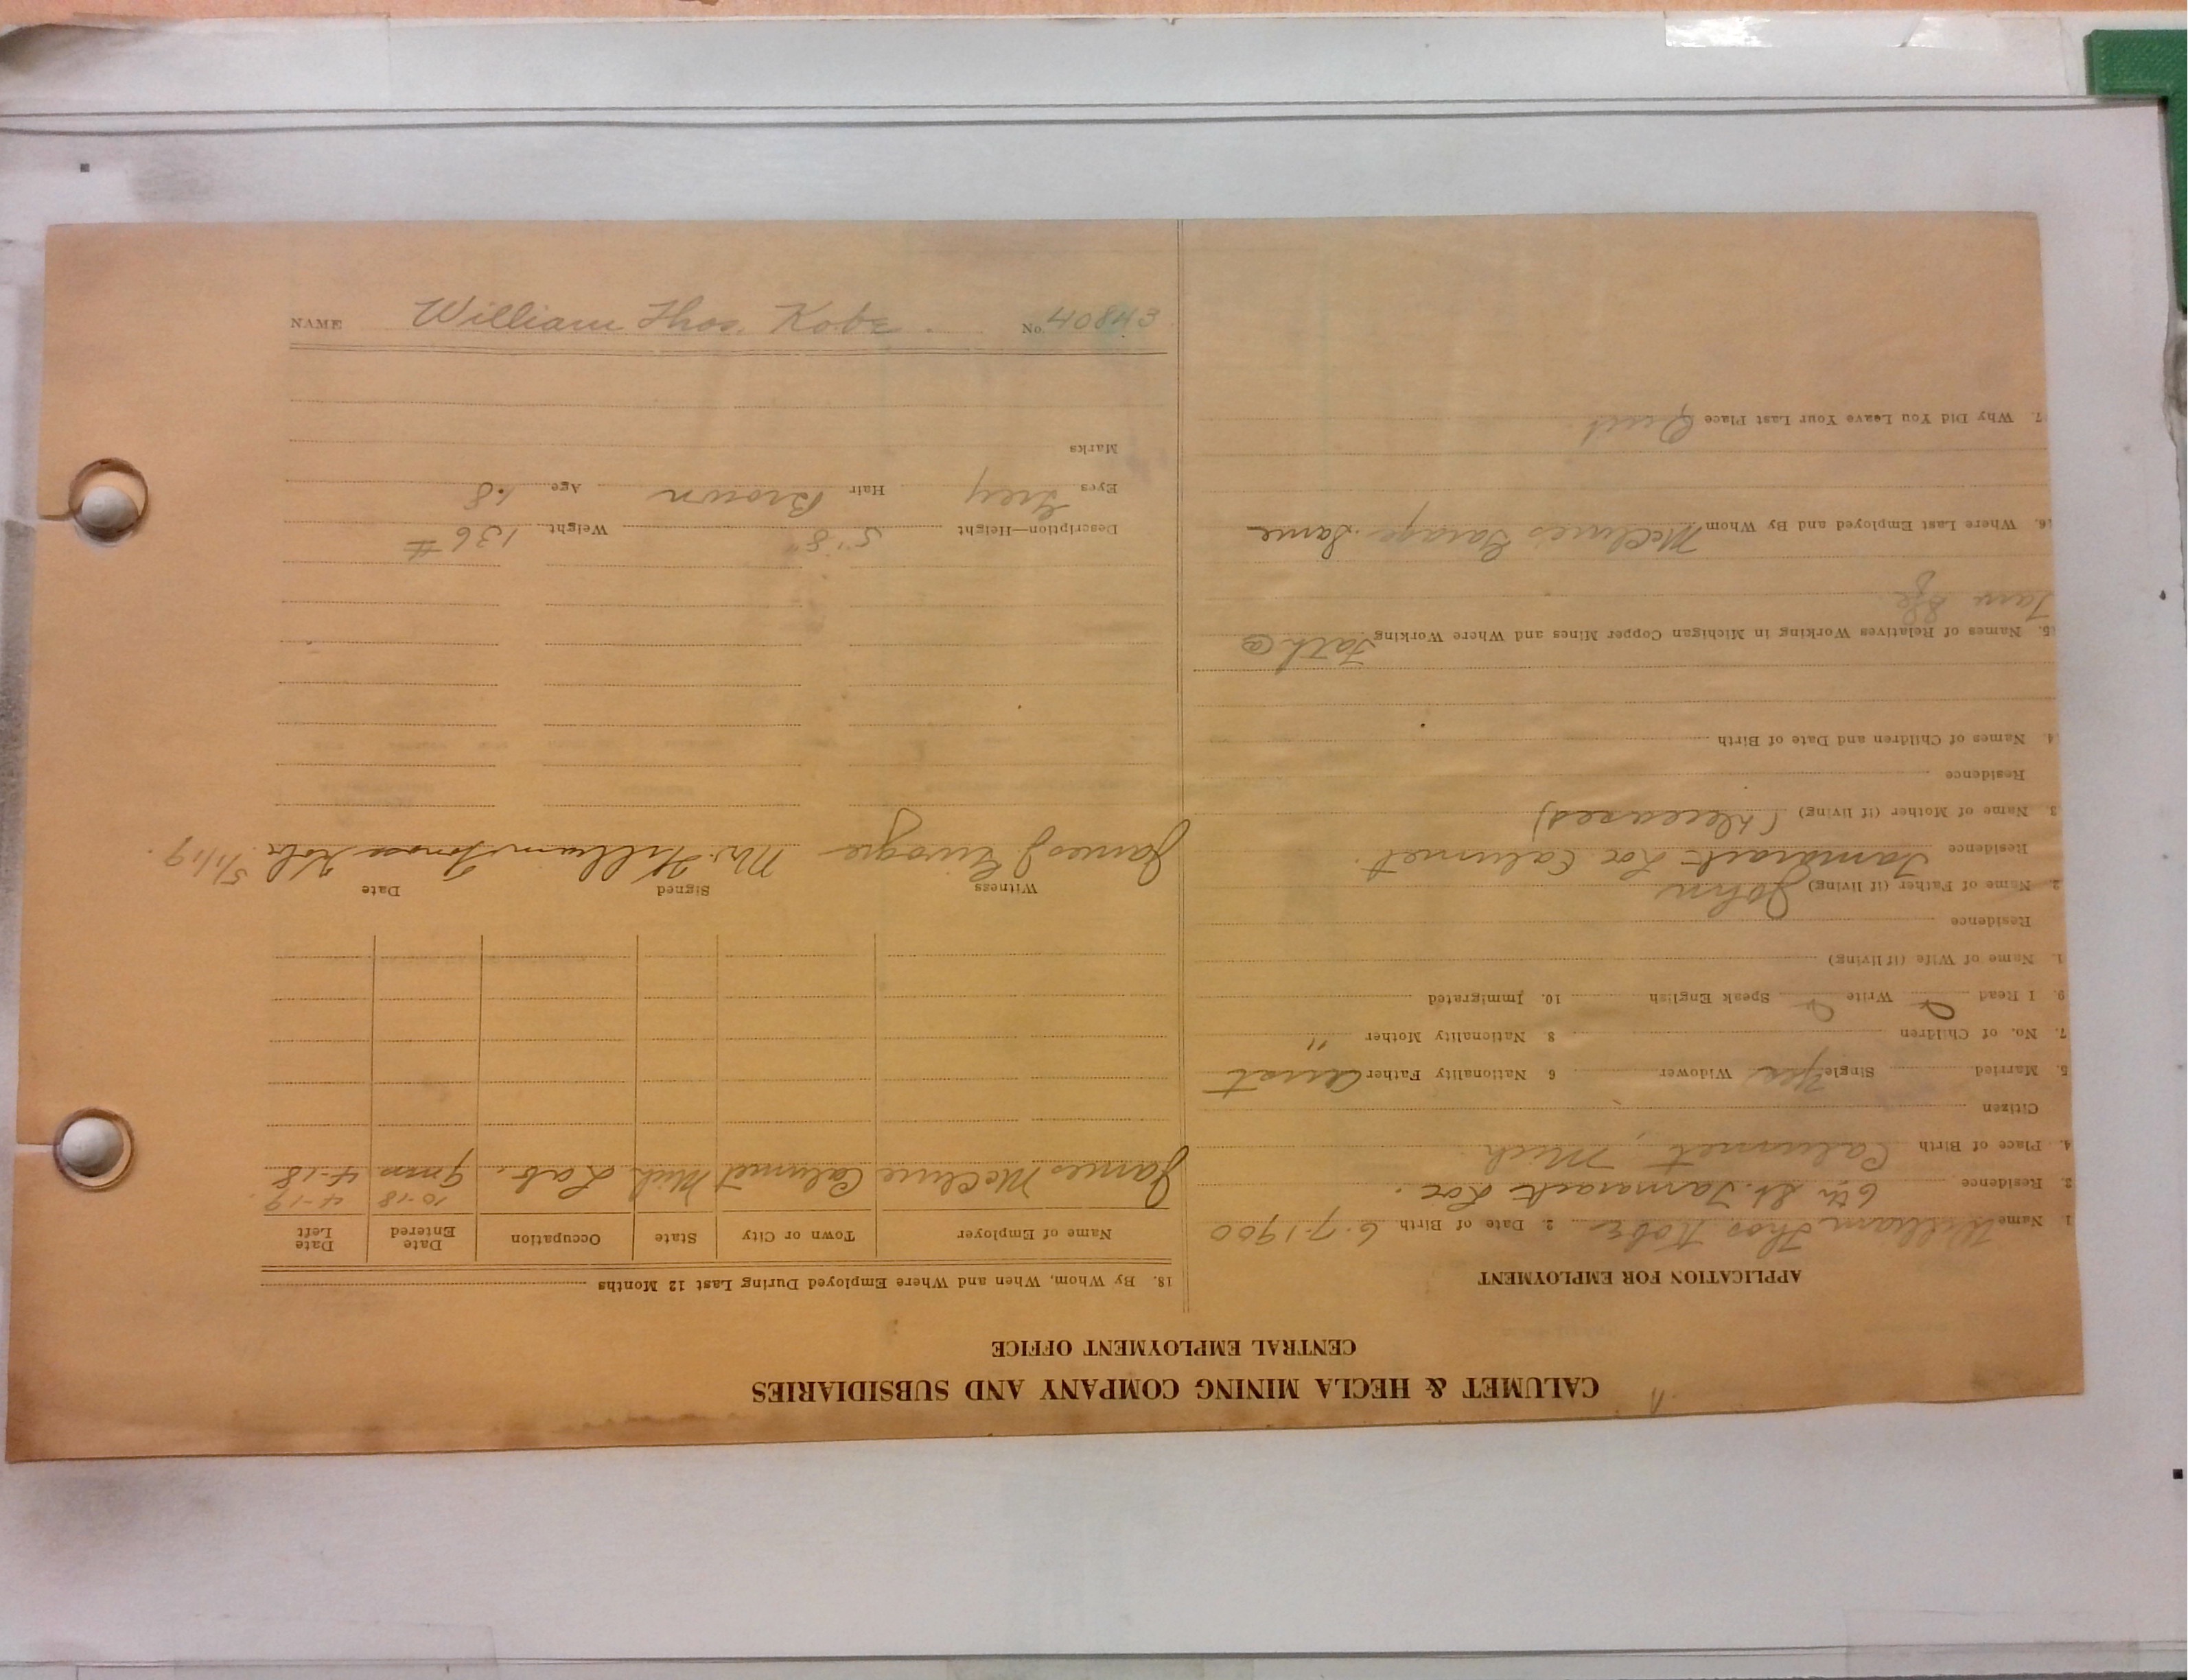 CALUMET & HECLA MINING COMPANY AND SUBSIDIARIES
CENTRAL EMPLOYMENT OFFICE
APPLICATION FOR EMPLOYMENT
1 Name William Thos Kobe 2. Date of Birth 6-7-1900
3. Residence 6th St. Tamarack Loc.
4. Place of Birth Calumet, Mich
Citizen
5. Married Single Yes Widower 6 Nationality Father
7. No. of Children 8 Nationality Mother "
9. I Read Write Speak English 10. Immigrated
1. Name of Wife (if living)
Residence
2. Name of Father (if living) John
Residence Tamarack Loc Calumet.
3. Name of Mother (if living) (Deceased)
Residence
4. Names of Children and Date of Birth
5. Names of Relatives Working in Michigan Copper Mines and Where Working Fath @
Tam
6. Where Last Employed and By Whom McClure's Garage. Same
7. Why Did You Leave Your Last Place Quit.
18. By Whom, When and Where Employed During Last 12 Months
Name of Employer Town or City State Occupation Date Entered Date Left
10-18 4-19
James McClure Calumet Mich Lab. 4-18
Witness Signed Date
James J. Mr. William Tomas Kobe 5/1/19.
Description—Height 5' 8" Weight 136 #
Eyes Grey Hair Brown Age 18
Marks
NAME William Thos. Kobe. No. 40843